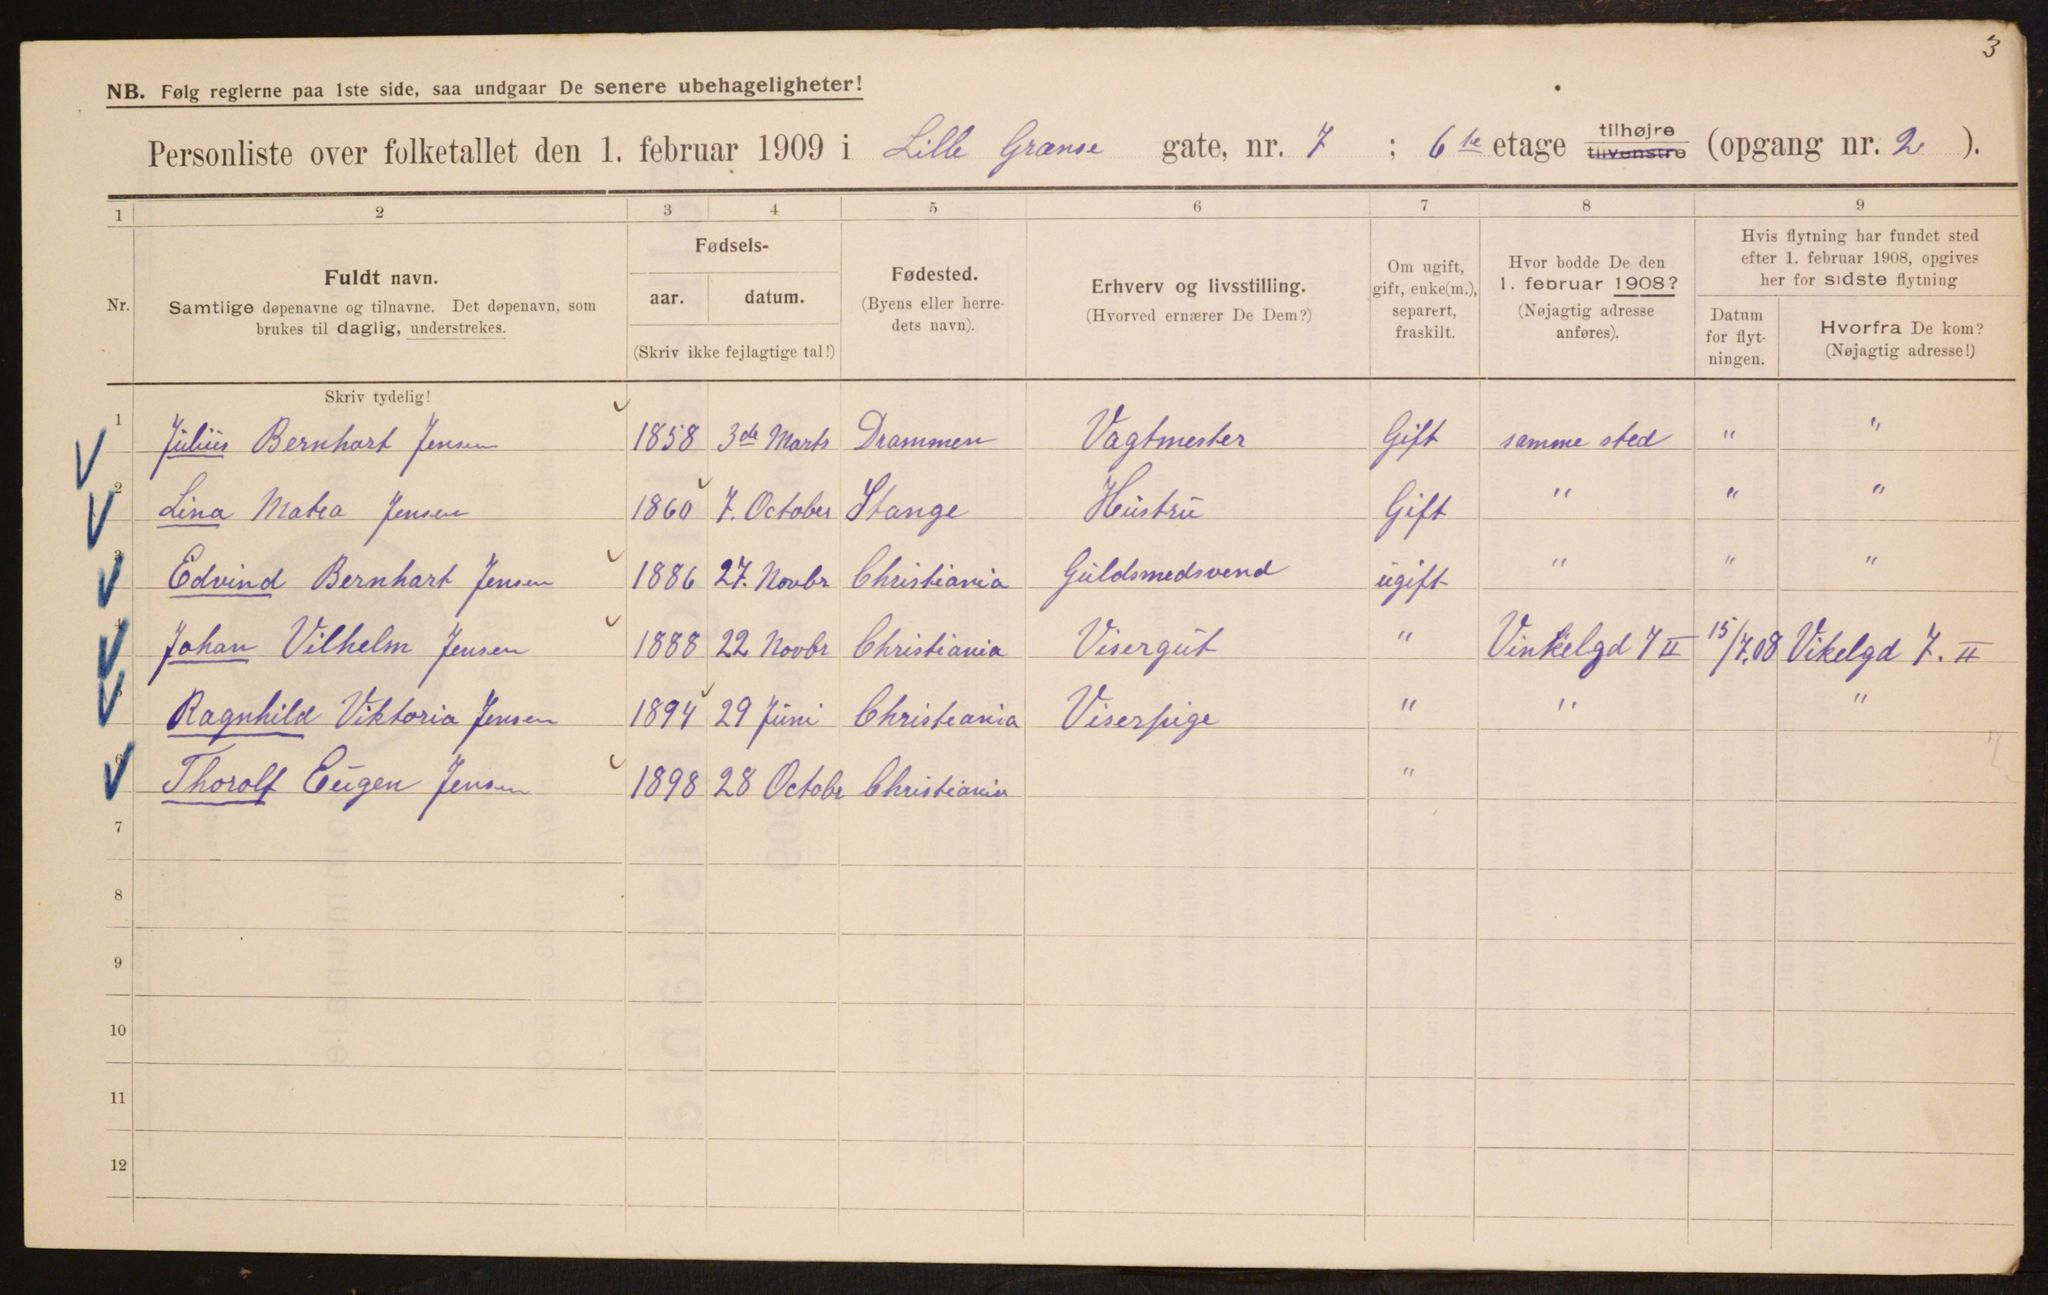 3
NB. Følg reglerne paa 1ste side, saa undgaar De senere ubehageligheter!
Personliste over folketallet den 1. februar 1909 i Lille Grænse gate, nr. 7 ; 6te etage tilhøjre tilvenstre (opgang nr. 2 ).
1 2 3 4 5 6 7 8 9
Nr.
Fuldt navn.
Samtlige døpenavne og tilnavne. Det døpenavn, som
brukes til daglig, understrekes.
Fødsels-
aar. datum.
(Skriv ikke fejlagtige tal!)
Fødested.
(Byens eller herre-
dets navn).
Erhverv og livsstilling.
(Hvorved ernærer De Dem?)
Om ugift,
gift, enke(m.),
separert,
fraskilt.
Hvor bodde De den
1. februar 1908?
(Nøjagtig adresse
anføres).
Hvis flytning har fundet sted
efter 1. februar 1908, opgives
her for sidste flytning
Datum
for flyt-
ningen.
Hvorfra De kom?
(Nøjagtig adresse!)
Skriv tydelig!
1 Julius Bernhart Jensen 1858 3de Marts Drammen Vagtmester Gift samme sted " "
2 Lina Matea Jensen 1860 7. October Stange Hustru Gift " " "
3 Edvind Bernhart Jensen 1886 27. Novbr Christiania Guldsmedsvend ugift " " "
Johan Vilhelm Jensen 1888 22 Novbr Christiania Visergut " Vinkelgd 7 II 15/7.08 Vikelgd 7. II
Ragnhild Viktoria Jensen 1894 29 Juni Christeania Viserpige " " "
6 Thorolf Eugen Jensen 1898 28 Octobr Christiania "
7
8
9
10
11
12